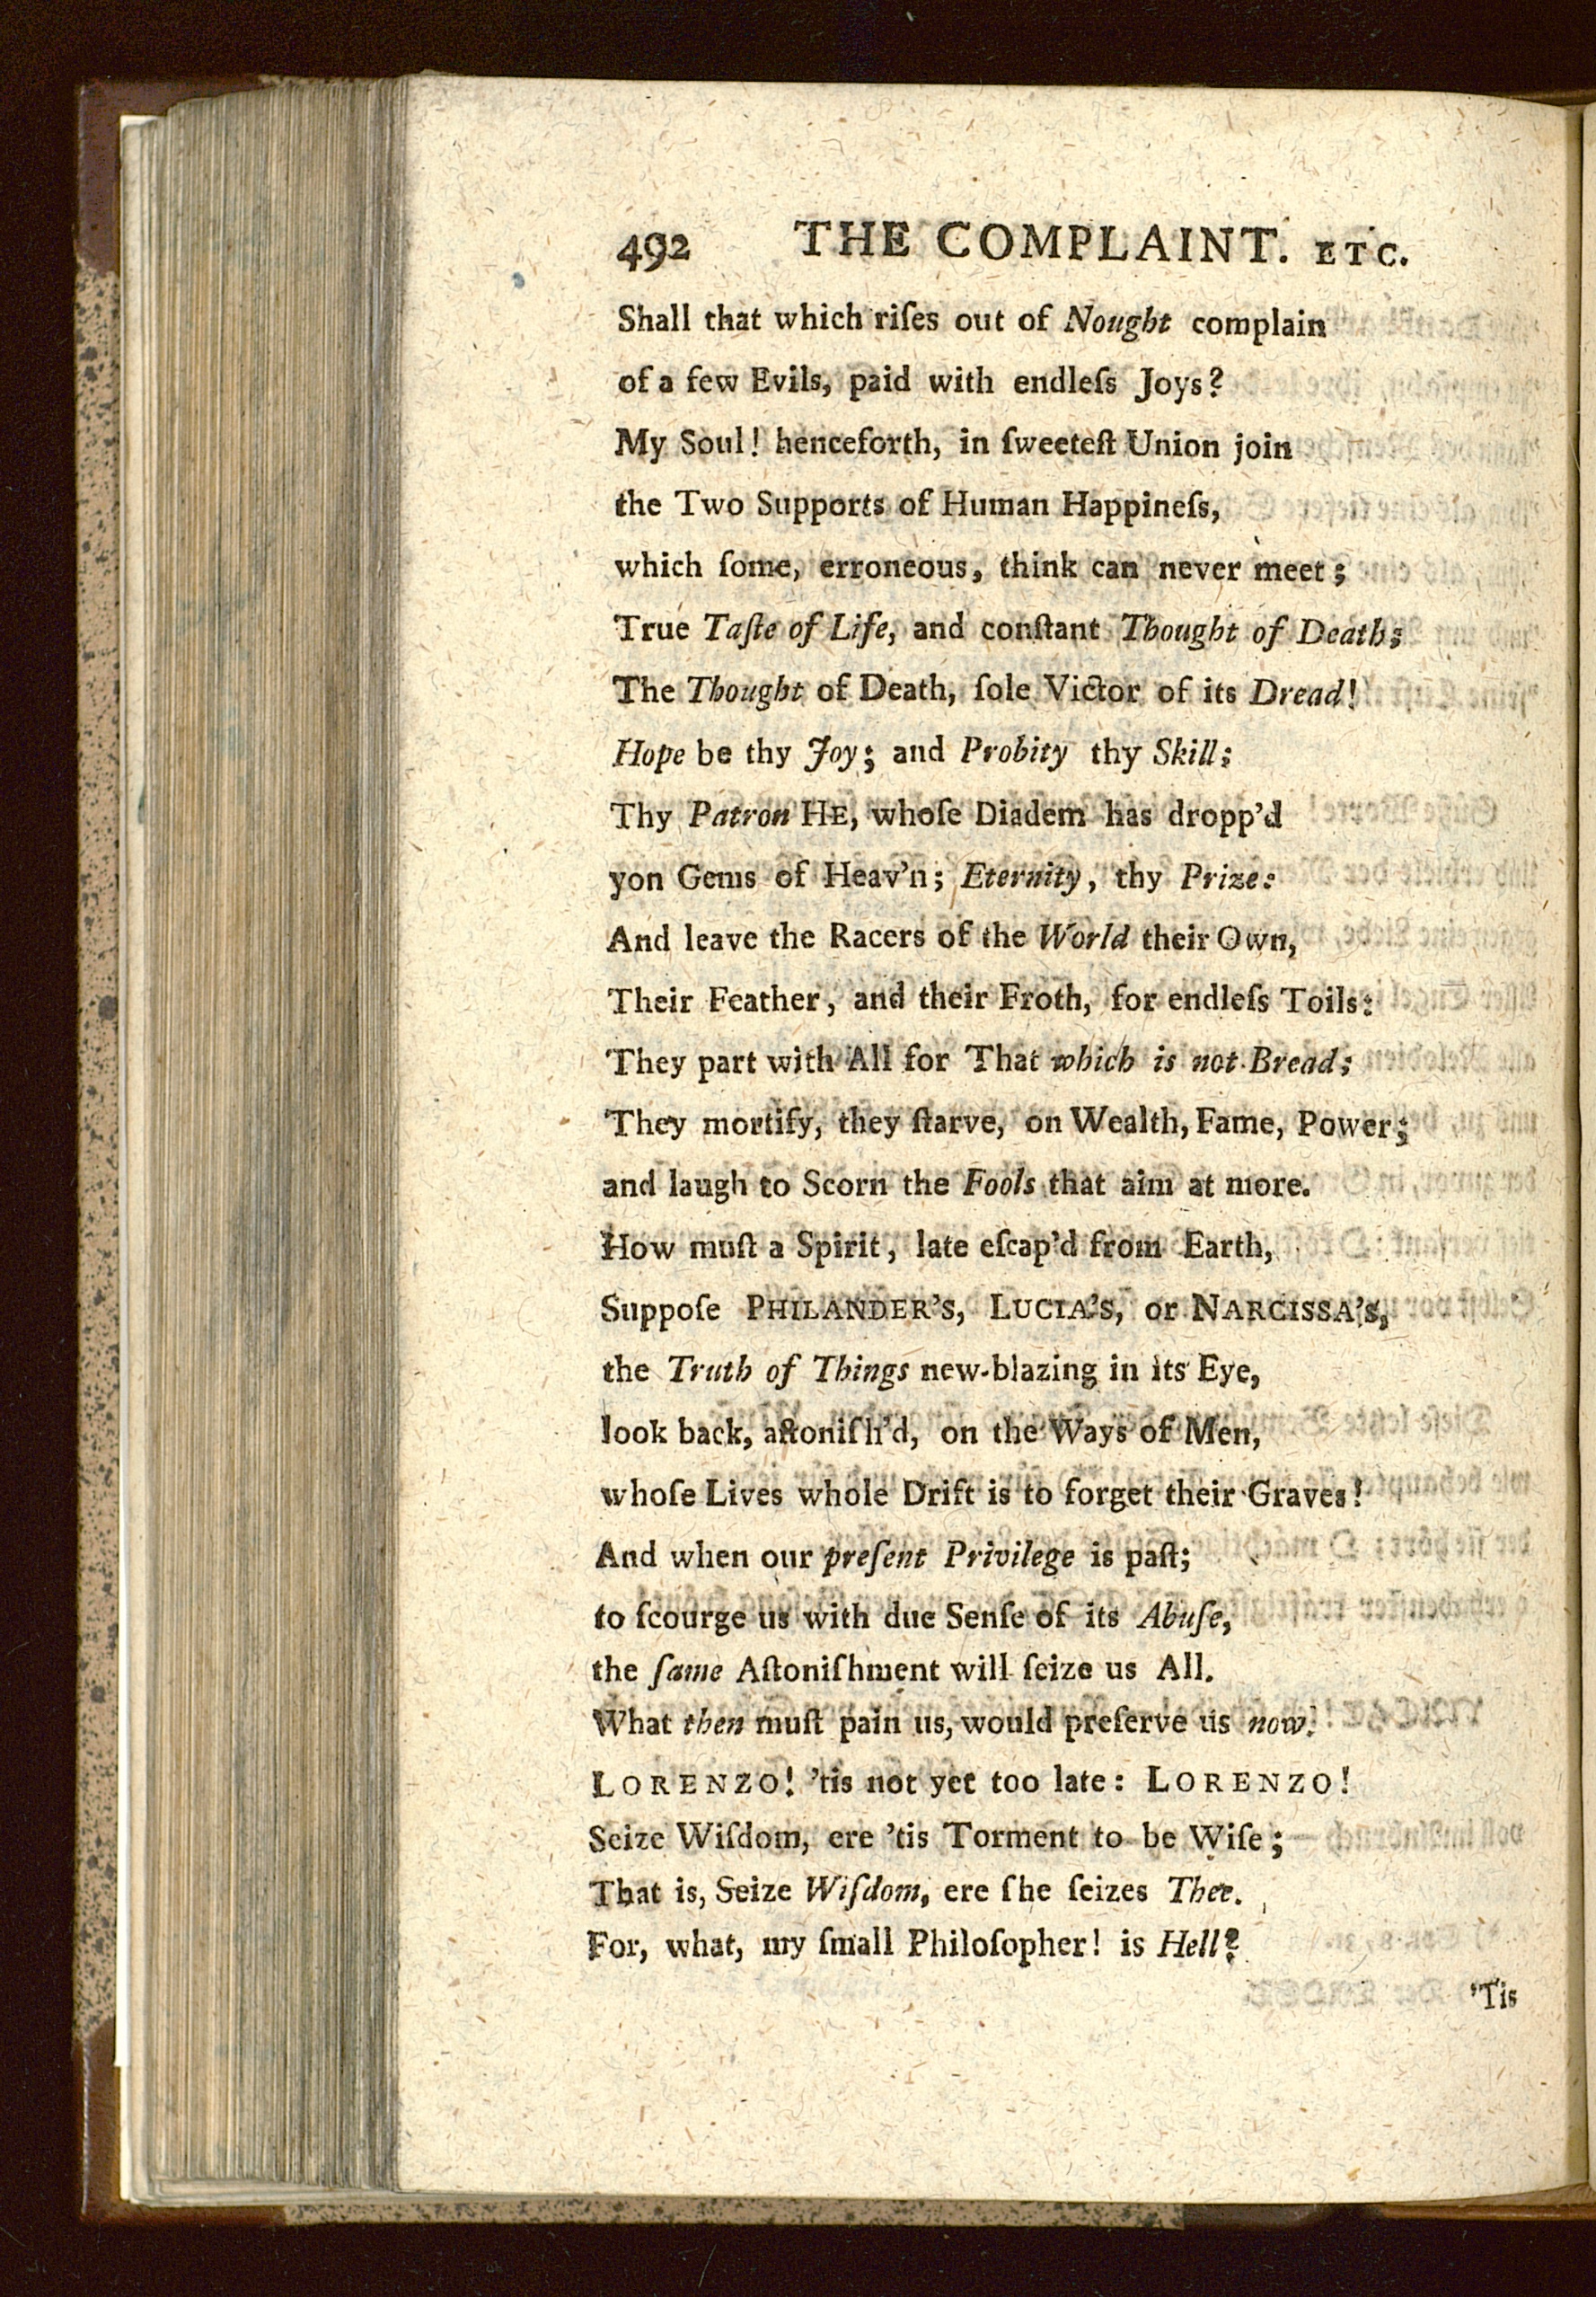 492 THE COMPLAINT. ETC.
Shall that which riſes out of Nought complain
of a few Evils, paid with endleſs Joys?
My Soul! henceforth, in ſweeteſt Union join
the Two Supports of Human Happineſs,
which ſome, erroneous, think can never meet;
True Taſte of Life, and conſtant Thought of Death;
The Thought of Death, ſole Victor of its Dread!
Hope be thy Joy; and Probity thy Skill;
Thy Patron HE, whoſe Diadem has dropp'd
yon Gems of Heav'n; Eternity, thy Prize:
And leave the Racers of the World their Own,
Their Feather, and their Froth, for endleſs Toils:
They part with All for That which is not Bread;
They mortify, they ſtarve, on Wealth, Fame, Power;
and laugh to Scorn the Fools that aim at more.
How muſt a Spirit, late eſcap'd from Earth,
Suppoſe PHILANDER'S, LUCIA'S, or NARCISSA'S,
the Truth of Things new-blazing in its Eye,
look back, aſtoniſh'd, on the Ways of Men,
whoſe Lives whole Drift is to forget their Graves!
And when our preſent Privilege is paſt;
to ſcourge us with due Senſe of its Abuſe,
the ſame Aſtoniſhment will ſeize us All.
What then muſt pain us, would preſerve us now.
LORENZO! 'tis not yet too late: LORENZO!
Seize Wiſdom, ere 'tis Torment to be Wiſe;
That is, Seize Wiſdom, ere ſhe ſeizes Thee.
For, what, my ſmall Philoſopher! is Hell?
'Tis